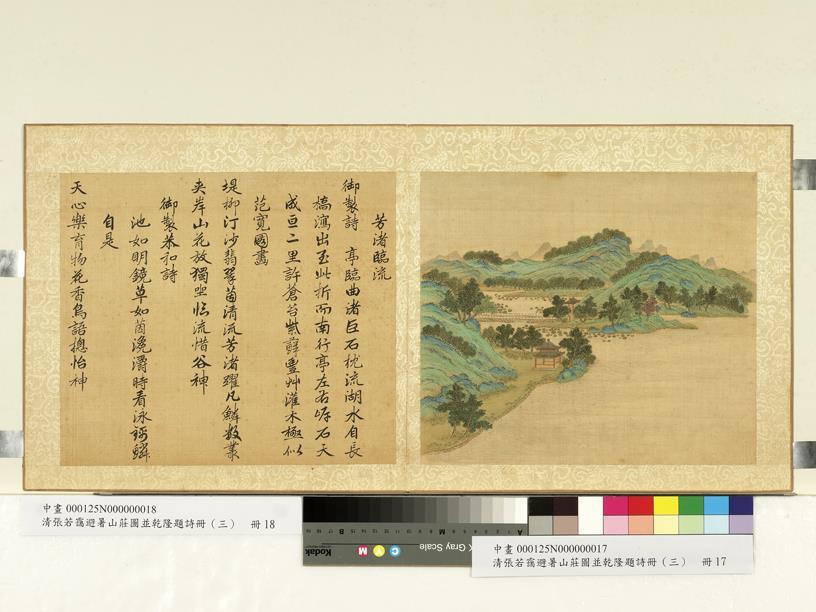 芳渚臨流
御製詩 亭臨曲渚巨石枕流湖水自長
橋瀉出至此折而南行亭左右岸石天
成亘二里許蒼苔紫蘚豐艸灌木極似
范寬圖畫
堤柳汀沙翡翠茵清流芳渚躍凡鱗數叢
夾岸山花放獨坐臨流惜谷神
御製恭和詩
池如明鏡草如茵瀺灂時看泳錦鱗
自是
天心樂育物花香鳥語摠怡神
中畫 000125N000000018
清張若靄避暑山莊圖並乾隆題詩冊（三） 冊 18
中畫 000125N000000017
清張若靄避暑山莊圖並乾隆題詩冊（三） 冊 17
Kodak
M Y C
Gray Scale
A M B